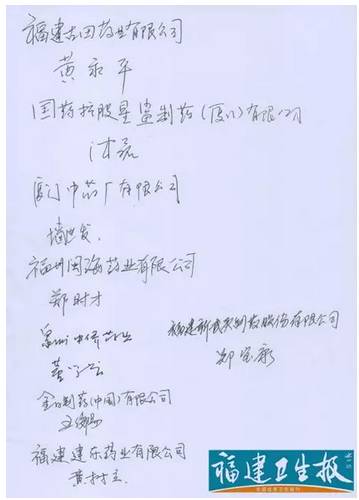 福建古田药业有限公司
黄永平
国药控股星鲨制药(厦门)有限公司
沐磊
厦门中药厂有限公司
福州闽海药业有限公司
郑时才
泉州中侨药业
福建新武夷制药股份有限公司
郑宝永
金日制药(中国)有限公司
福建建东药业有限公司
黄树立
福建卫生报